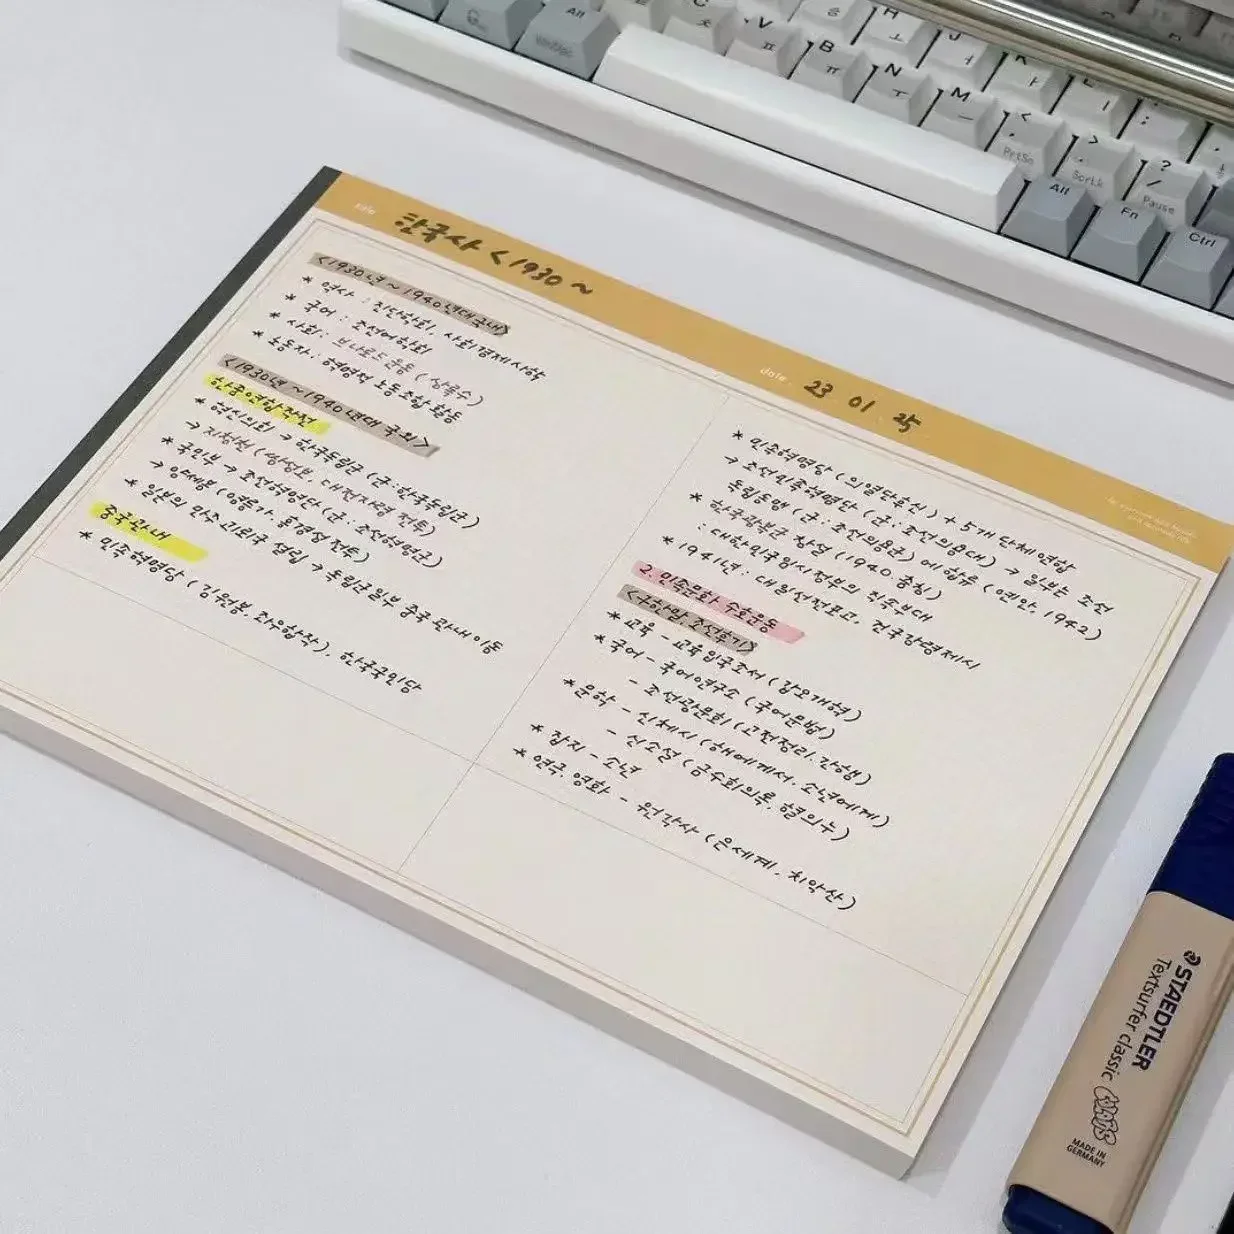 title 한국사 < 1930 ~
date 23 01 25
<1930년 ~ 1940년대 국내>
* 역사 : 진단학회, 사회경제사학
* 국어 : 조선어학회
* 사회 : 브나로드 운동 (상록수)
* 노동자 : 혁명적 노동조합 활동
<1930년 ~ 1940년대 국외>
한중연합작전
* 혁신의회 → 한국독립군 (군:한국독립군)
→ 지청천 (쌍성보, 대전자령 전투)
* 국민부 → 조선혁명당 (군:조선혁명군)
→ 양세봉 (영릉가, 흥경성 전투)
* 일본의 만주 괴뢰국 건립 → 독립군 일부 중국 관내 이동
중국 관내
* 민족혁명당 (김원봉, 좌우합작), 한국국민당
* 민족혁명당 (의열단 중심) + 5개 단체 연합
→ 조선민족혁명당 (군:조선의용대) → 일부는 조선
독립동맹 (군:조선의용군)에 합류 (연안, 1942)
* 한국광복군 창설 (1940 충칭)
: 대한민국임시정부의 직속부대
* 1941년 : 대일선전포고, 건국강령제시
2. 민족문화 수호운동
* 교육 - 교육입국조서 (갑오개혁)
* 국어 - 국어연구소 (국어문법)
- 조선광문회 (고전정리, 간행)
* 문학 - 신체시 (해에게서 소년에게)
- 신소설 (금수회의록, 혈의누)
* 잡지 - 소년
* 연극, 영화 - 원각사 (은세계, 치악산)
C ㅊ
V ㅍ
B ㅠ
N ㅜ
M ㅡ
H
J
K
<
,
PrtSn
>
.
ScrLk
?
/
Pause
Alt
Alt
Fn
Ctrl
STAEDTLER
Textsurfer classic
MADE IN
GERMANY